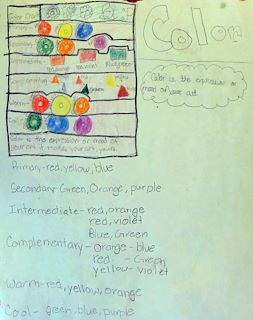 Color
Color is the expression or
mood of your art.
Color Chart
Color is the expression or mood of
your art it makes your art, yours.
Primary-red, yellow, blue
Secondary-Green, Orange, purple
Intermediate-red, orange
red, violet
Blue, Green
Complementary-Orange-blue
red - Green
yellow-violet
Warm-red, yellow, orange
Cool-green, blue, purple